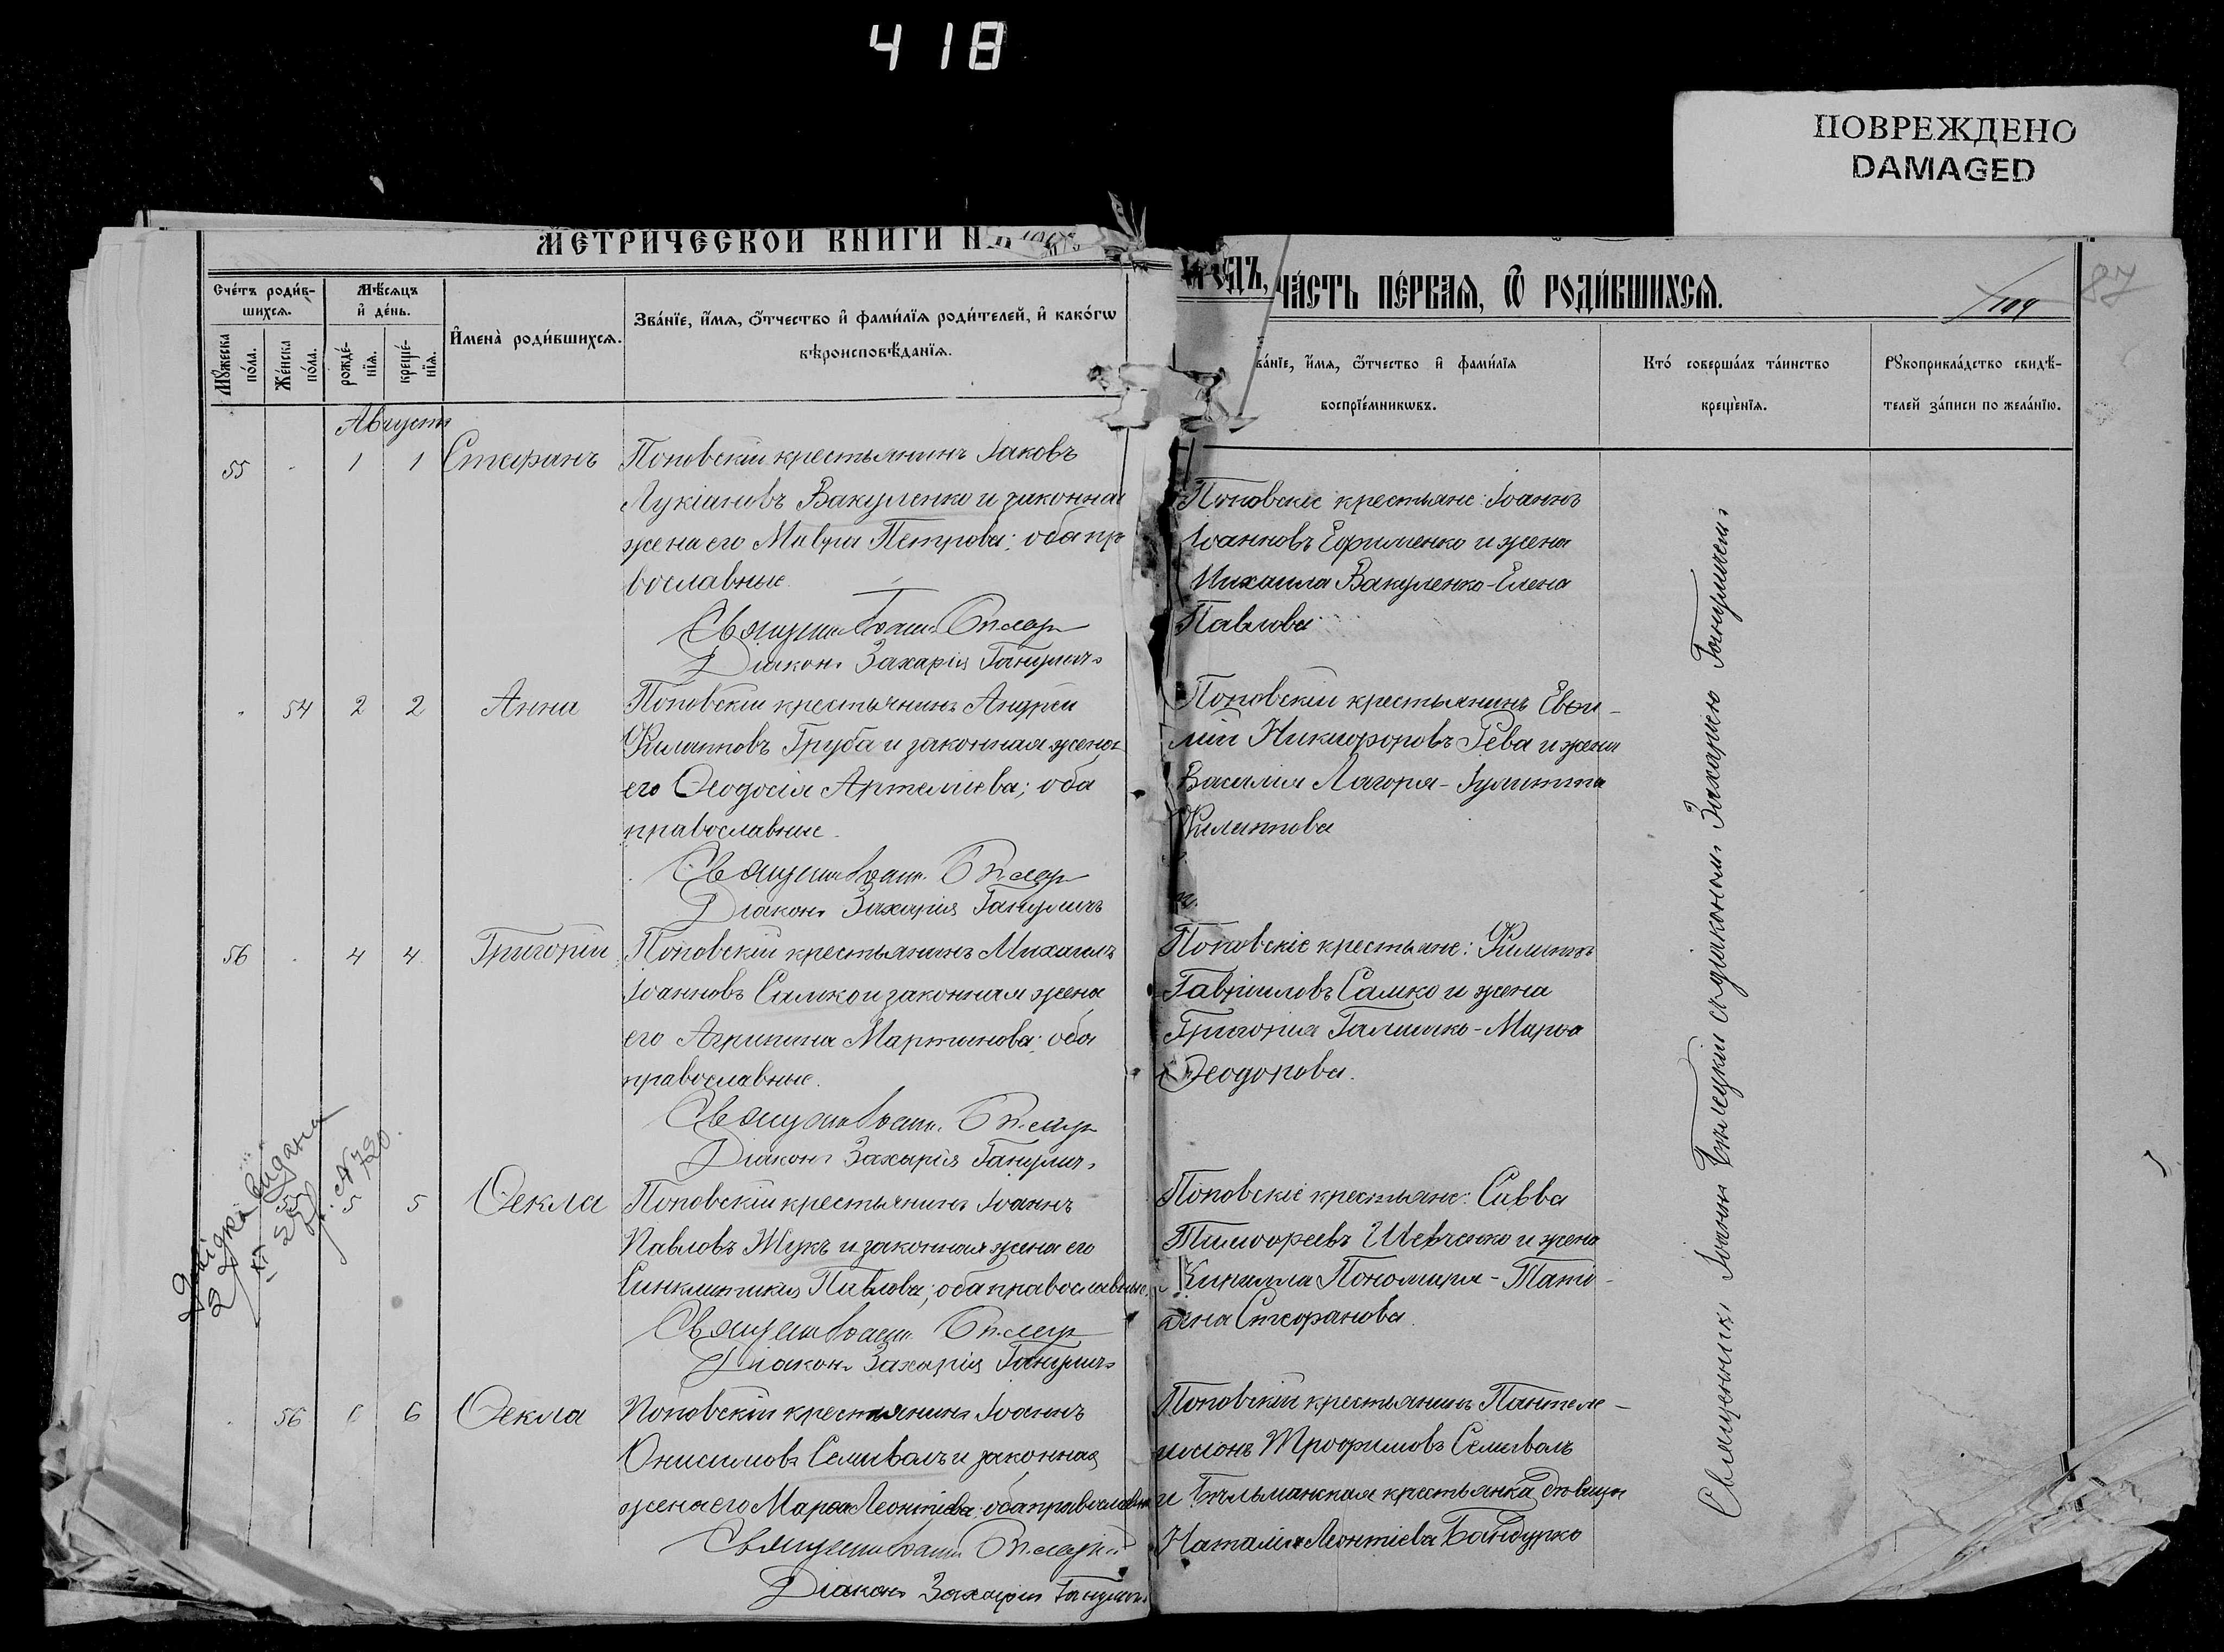 418
ПОВРЕЖДЕНО
DAMAGED
МЕТРИЧЕСКОЙ КНИГИ Н
ЧА́СТЬ ПЕ́РВАЯ, Ѿ РОДИ́ВШИХСЯ.
109
87
Сче́тъ роди́в-
шихсѧ.
Мꙋ́жеска по́ла.
Же́нска по́ла.
Мѣ́сѧцъ
и҆ де́нь.
рожде́-
нїѧ.
креще́-
нїѧ.
И҆мена̀ роди́вшихсѧ.
Зва́нїе, и҆́мѧ, ѻ҆́тчество и҆ фами́лїѧ роди́телей, и҆ како́гѡ
вѣроисповѣ́данїѧ.
ва́нїе, и҆́мѧ, ѻ҆́тчество и҆ фами́лїѧ
воспрїе́мникѡвъ.
Кто́ соверша́лъ та́инство
креще́нїѧ.
Рꙋкоприкла́дство свидѣ́-
телей за́писи по жела́нїю.
Августъ
55 - 1 1 Стефанъ
Поповскій крестьянинъ Іаковъ
Лукіановъ Вакуленко и законная
жена его Мавра Петрова; оба пр
вославные.
Священникъ Іоаннъ
Діаконъ Захарія Ганулич
Поповскіе крестьяне: Іоаннъ
Іоанновъ Ефименко и жена
Михаила Вакуленко-Елена
Павлова
54 2 2 Анна
Поповскій крестьянинъ Андрей
Филипповъ Груба и законная жена
его Ѳеодосія Артеміева; оба
православные.
Священникъ Іоаннъ
Діаконъ Захарія Ганулич
Поповскій крестьянинъ Евѳи-
мій Никифоровъ Рева и жена
Василія Лагоря - Іулитта
Филиппова
56 - 4 4 Григорій
Поповскій крестьянинъ Михаилъ
Іоанновъ Самко и законная жена
его Агрипина Мартинова; оба
православные.
Священникъ Іоаннъ
Діаконъ Захарія Ганулич
Поповскіе крестьяне: Филиппъ
Гавріиловъ Самко и жена
Григорія Галушко - Марѳа
Ѳеодорова.
55 5 5 Ѳекла
Поповскій крестьянинъ Іоаннъ
Павловъ Жукъ и законная жена его
Синклитикія Павлова; оба православные.
Священникъ Іоаннъ
Діаконъ Захарія Ганулич
Поповскіе крестьяне: Савва
Тимоѳеевъ Шевченко и жена
Кирилла Пономаря - Таті-
ана Стефанова.
№ 720.
56 6 6 Ѳекла
Поповскій крестьянинъ Іоаннъ
Онисимовъ Семивалъ и законная
жена его Марѳа Леонтіева; оба православн
Священникъ Іоаннъ
Діаконъ Захарія Ганулич
Поповскій крестьянинъ Пантеле-
имонъ Трофимовъ Семивалъ
и Бѣльманская крестьянка дѣвица
Наталія Леонтіева Бандурко
Священникъ Іоаннъ Бѣлецкій съ діакономъ Захаріею Ганулич